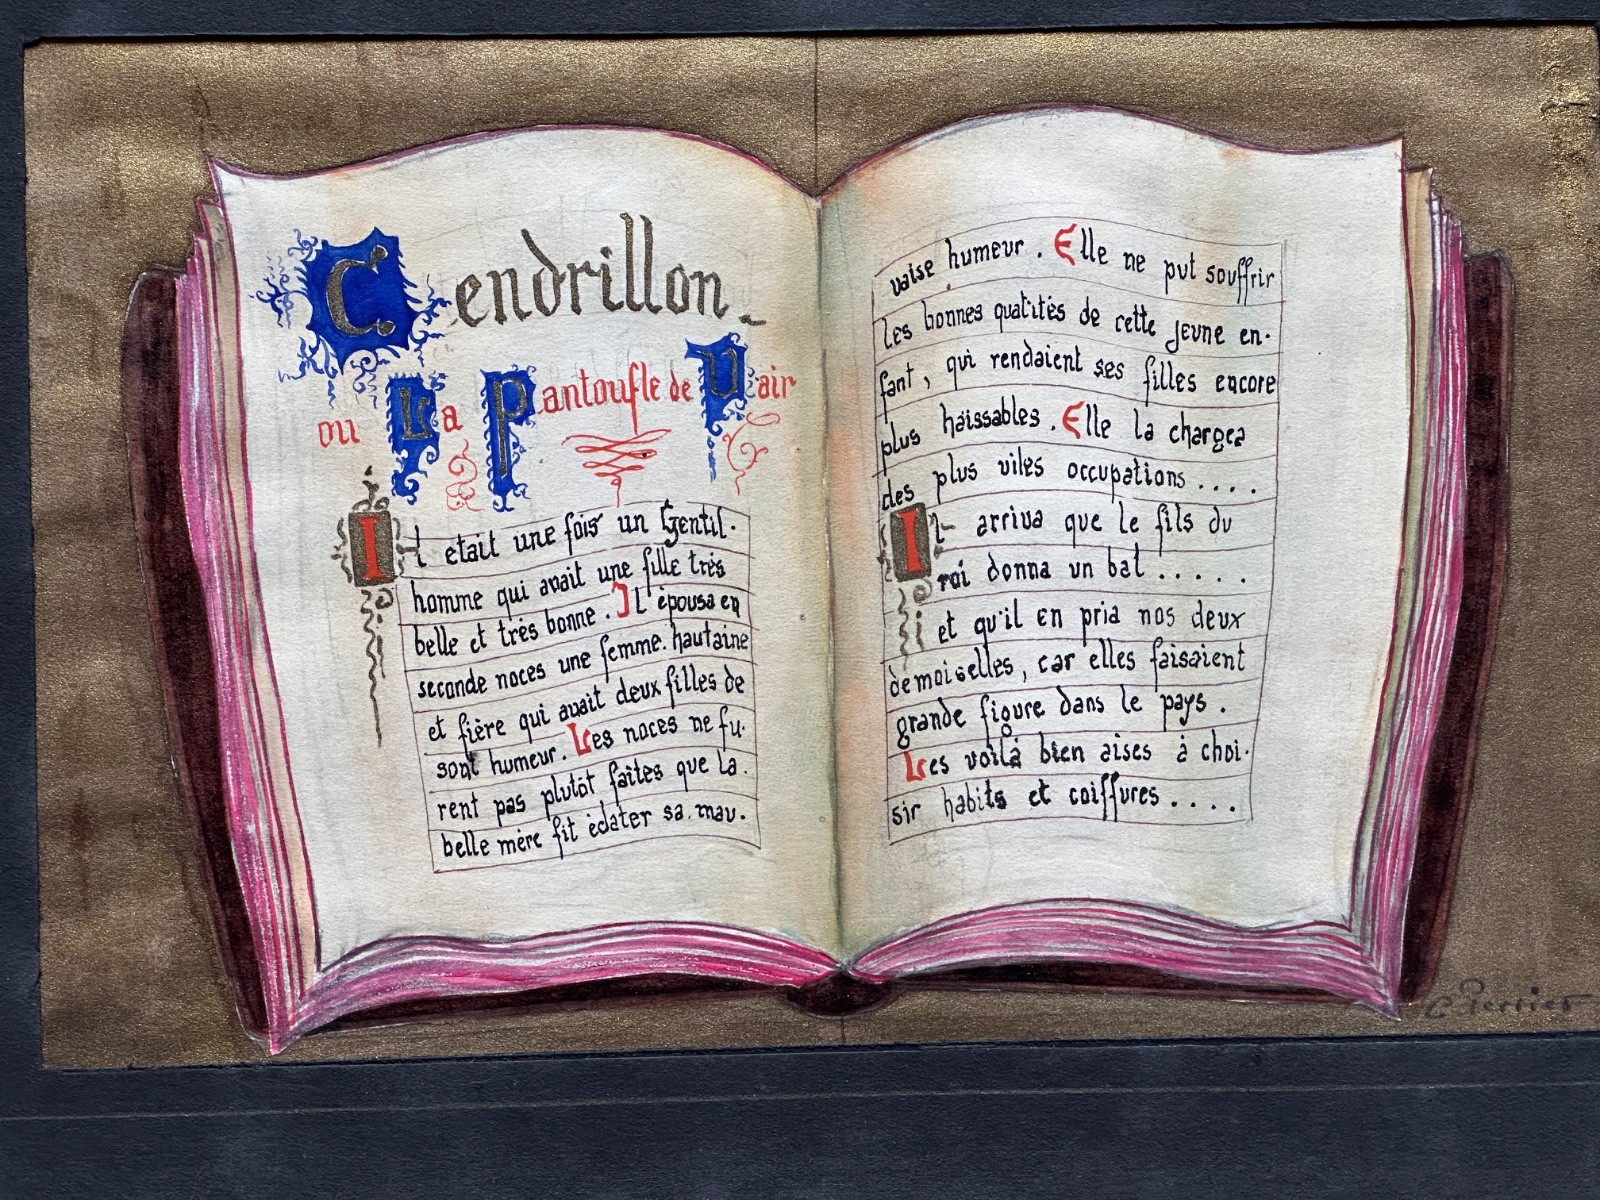 Cendrillon
ou La Pantoufle de Vair
Il etait une fois un Gentil.
homme qui avait une fille très
belle et très bonne. Il épousa en
seconde noces une femme. hautaine
et fière qui avait deux filles de
sont humeur. Les noces ne fu.
rent pas plutôt faites que la.
belle mère fit éclater sa. mau.
vaise humeur. Elle ne put souffrir
les bonnes qualités de cette jeune en.
fant, qui rendaient ses filles encore
plus haissables. Elle la chargea
des plus viles occupations ....
Il arriva que le fils du
roi donna un bal .....
et qu'il en pria nos deux
demoiselles, car elles faisaient
grande figure dans le pays.
Les voilà bien aises à choi.
sir habits et coiffures ....
C Perrier